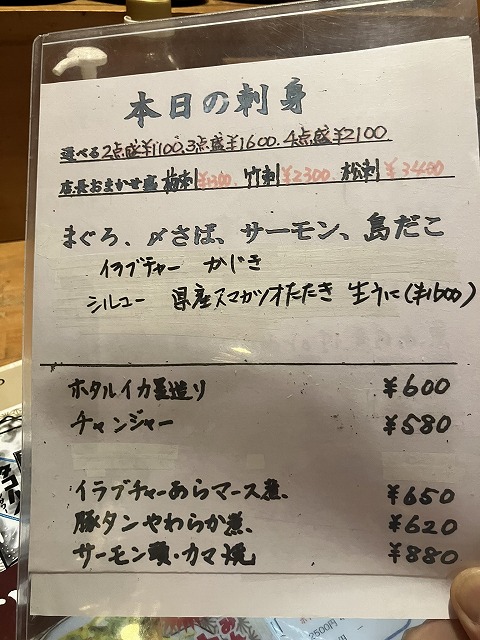 本日の刺身
選べる2点盛¥1100.3点盛¥1600.4点盛¥2100
店長おまかせ盛 梅刺¥1300. 竹刺¥2300 松刺¥3400
まぐろ、〆さば、サーモン、島だこ
イラブチャー かじき
シルユー 県産スマガツオたたき 生うに(¥1600)
ホタルイカ造り ¥600
チャンジャー ¥580
イラブチャーあらマース煮、 ¥650
豚タンやわらか煮、 ¥620
サーモン頭・カマ焼 ¥880